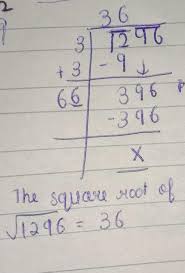 2
9
36
3 √1296
+3 -9 ↓
66 396
-396
x
The square root of
√1296 = 36